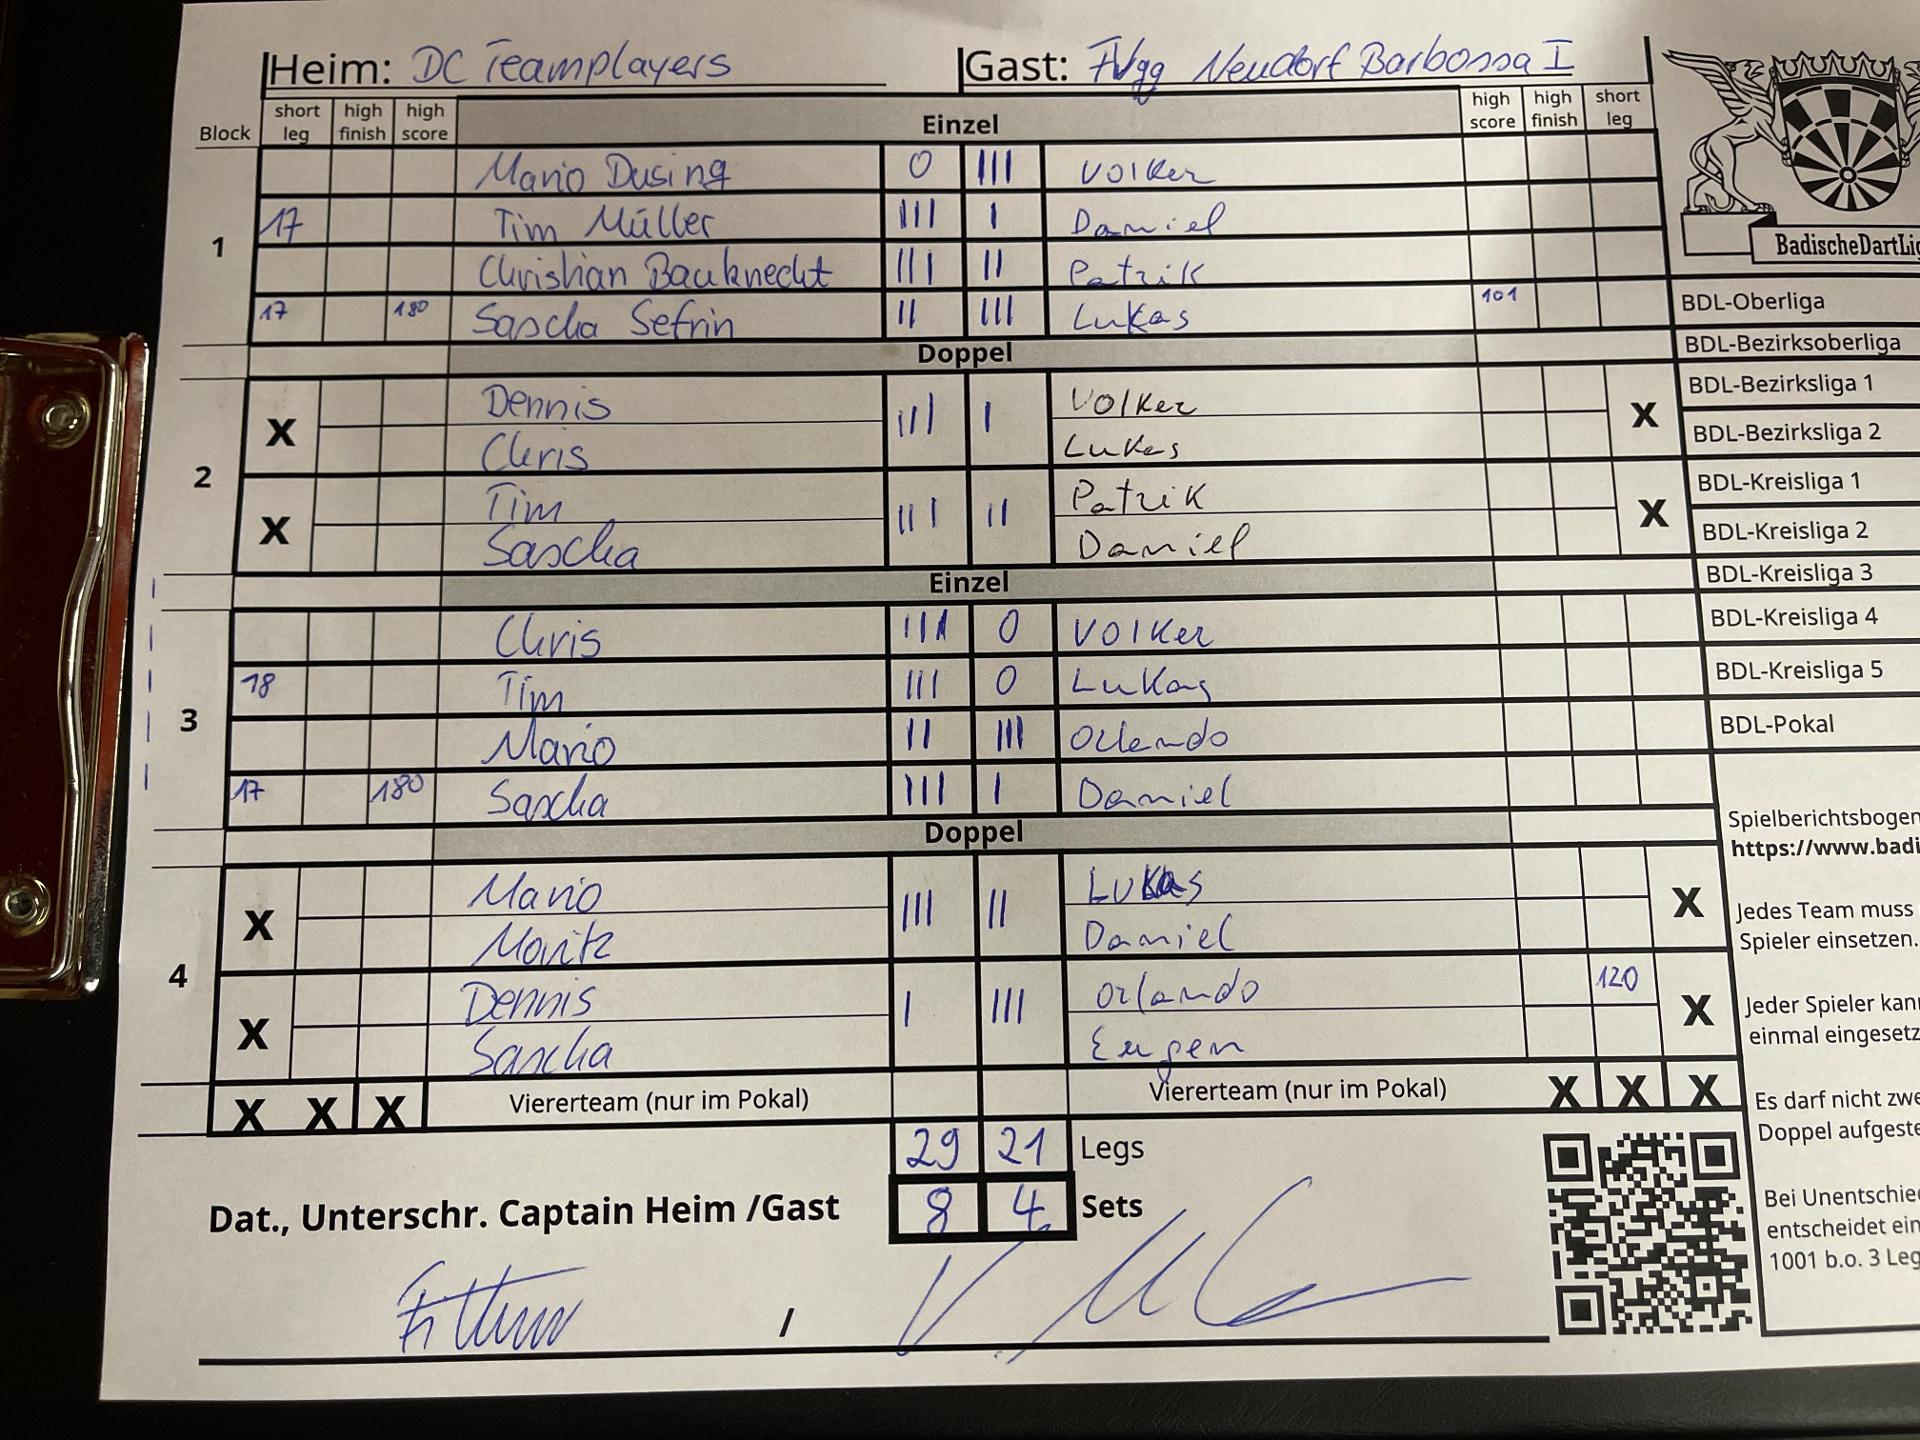 Heim: DC Teamplayers Gast: FVgg Neudorf Barbossa I
Block short leg high finish high score Einzel high score high finish short leg
1
Mario Dusing 0 III Volker
17 Tim Müller III I Daniel
Christian Bauknecht III II Patrik
17 180 Sascha Sefrin II III Lukas 101
Doppel
2
X Dennis III I Volker X
Chris Lukas
X Tim III II Patrik X
Sascha Daniel
Einzel
3
Chris III 0 Volker
18 Tim III 0 Lukas
Mario II III Orlando
17 180 Sascha III I Daniel
Doppel
4
X Mario III II Lukas X
Moritz Daniel
X Dennis I III Orlando 120 X
Sascha Eugen
X X X Viererteam (nur im Pokal) Viererteam (nur im Pokal) X X X
29 21 Legs
Dat., Unterschr. Captain Heim /Gast 8 4 Sets
/
BadischeDartLig
BDL-Oberliga
BDL-Bezirksoberliga
BDL-Bezirksliga 1
BDL-Bezirksliga 2
BDL-Kreisliga 1
BDL-Kreisliga 2
BDL-Kreisliga 3
BDL-Kreisliga 4
BDL-Kreisliga 5
BDL-Pokal
Spielberichtsbogen
https://www.badi
Jedes Team muss
Spieler einsetzen.
Jeder Spieler kann
einmal eingesetz
Es darf nicht zwe
Doppel aufgeste
Bei Unentschied
entscheidet ein
1001 b.o. 3 Leg